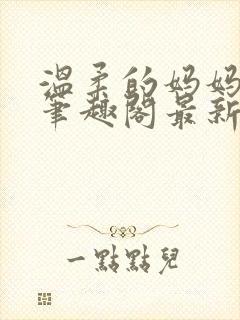 温柔的妈妈
笔趣阁最新
一點點兒